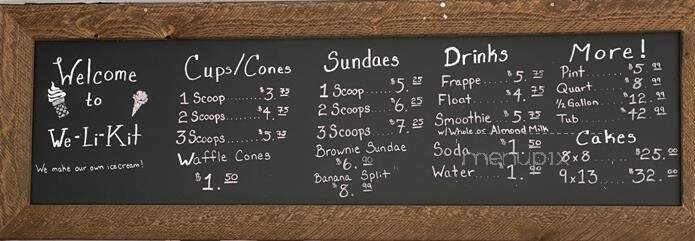 Welcome
to
We-Li-Kit
We make our own ice cream!
Cups/Cones
1 Scoop........$3.75
2 Scoops......$4.75
3 Scoops......$5.75
Waffle Cones
$1.50
Sundaes
1 Scoop........$5.25
2 Scoops.....$6.25
3 Scoops.....$7.25
Brownie Sundae
$6.99
Banana Split
$8.99
Drinks
Frappe......$5.75
Float.........$4.75
Smoothie.....$5.75
w/Whole or Almond Milk
Soda.........$1.50
Water.......$1.00
More!
Pint..........$5.99
Quart.......$8.99
½ Gallon....$12.99
Tub..........$42.99
Cakes
8x8......$25.00
9x13.....$32.00
menupix